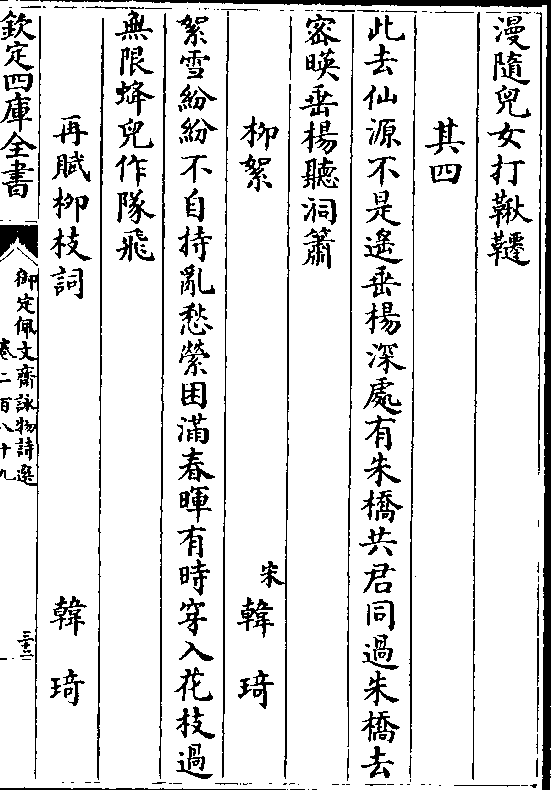 漫隨兒女打鞦韆
其四
此去仙源不是遙垂楊深處有朱橋共君同過朱橋去
密暎垂楊聽洞簫
柳絮
宋韓琦
絮雪紛紛不自持亂愁縈困滿春暉有時穿入花枝過
無限蜂兒作隊飛
再賦柳枝詞
韓琦
欽定四庫全書
御定佩文齋詠物詩選
卷二百八十九
三三